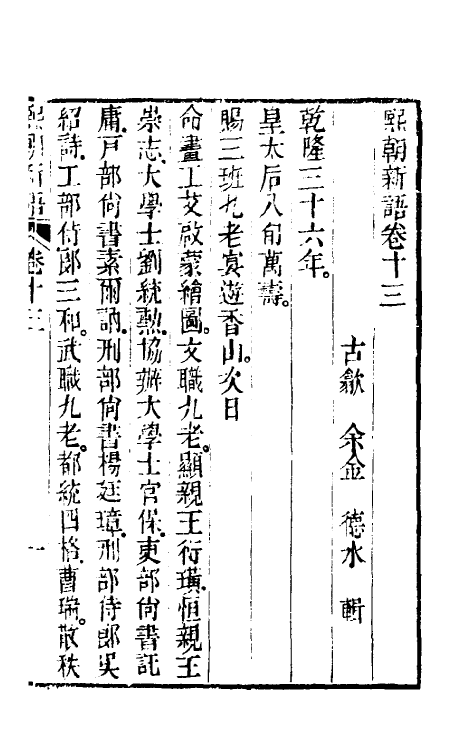 熙朝新語卷十三
古歙 余金 德水 輯
乾隆三十六年。
皇太后八旬萬壽。
賜三班九老宴遊香山。次日
命畫工艾啟蒙繪圖。文職九老。顯親王衍璜。恒親王
崇志。大學士劉統勲。協辦大學士官保。吏部尚書託
庸。戸部尚書素爾訥。刑部尚書楊廷璋。刑部侍郎吳
紹詩。工部侍郎三和。武職九老。都統四格。曹瑞。散秩
熙朝新語 卷十三 一